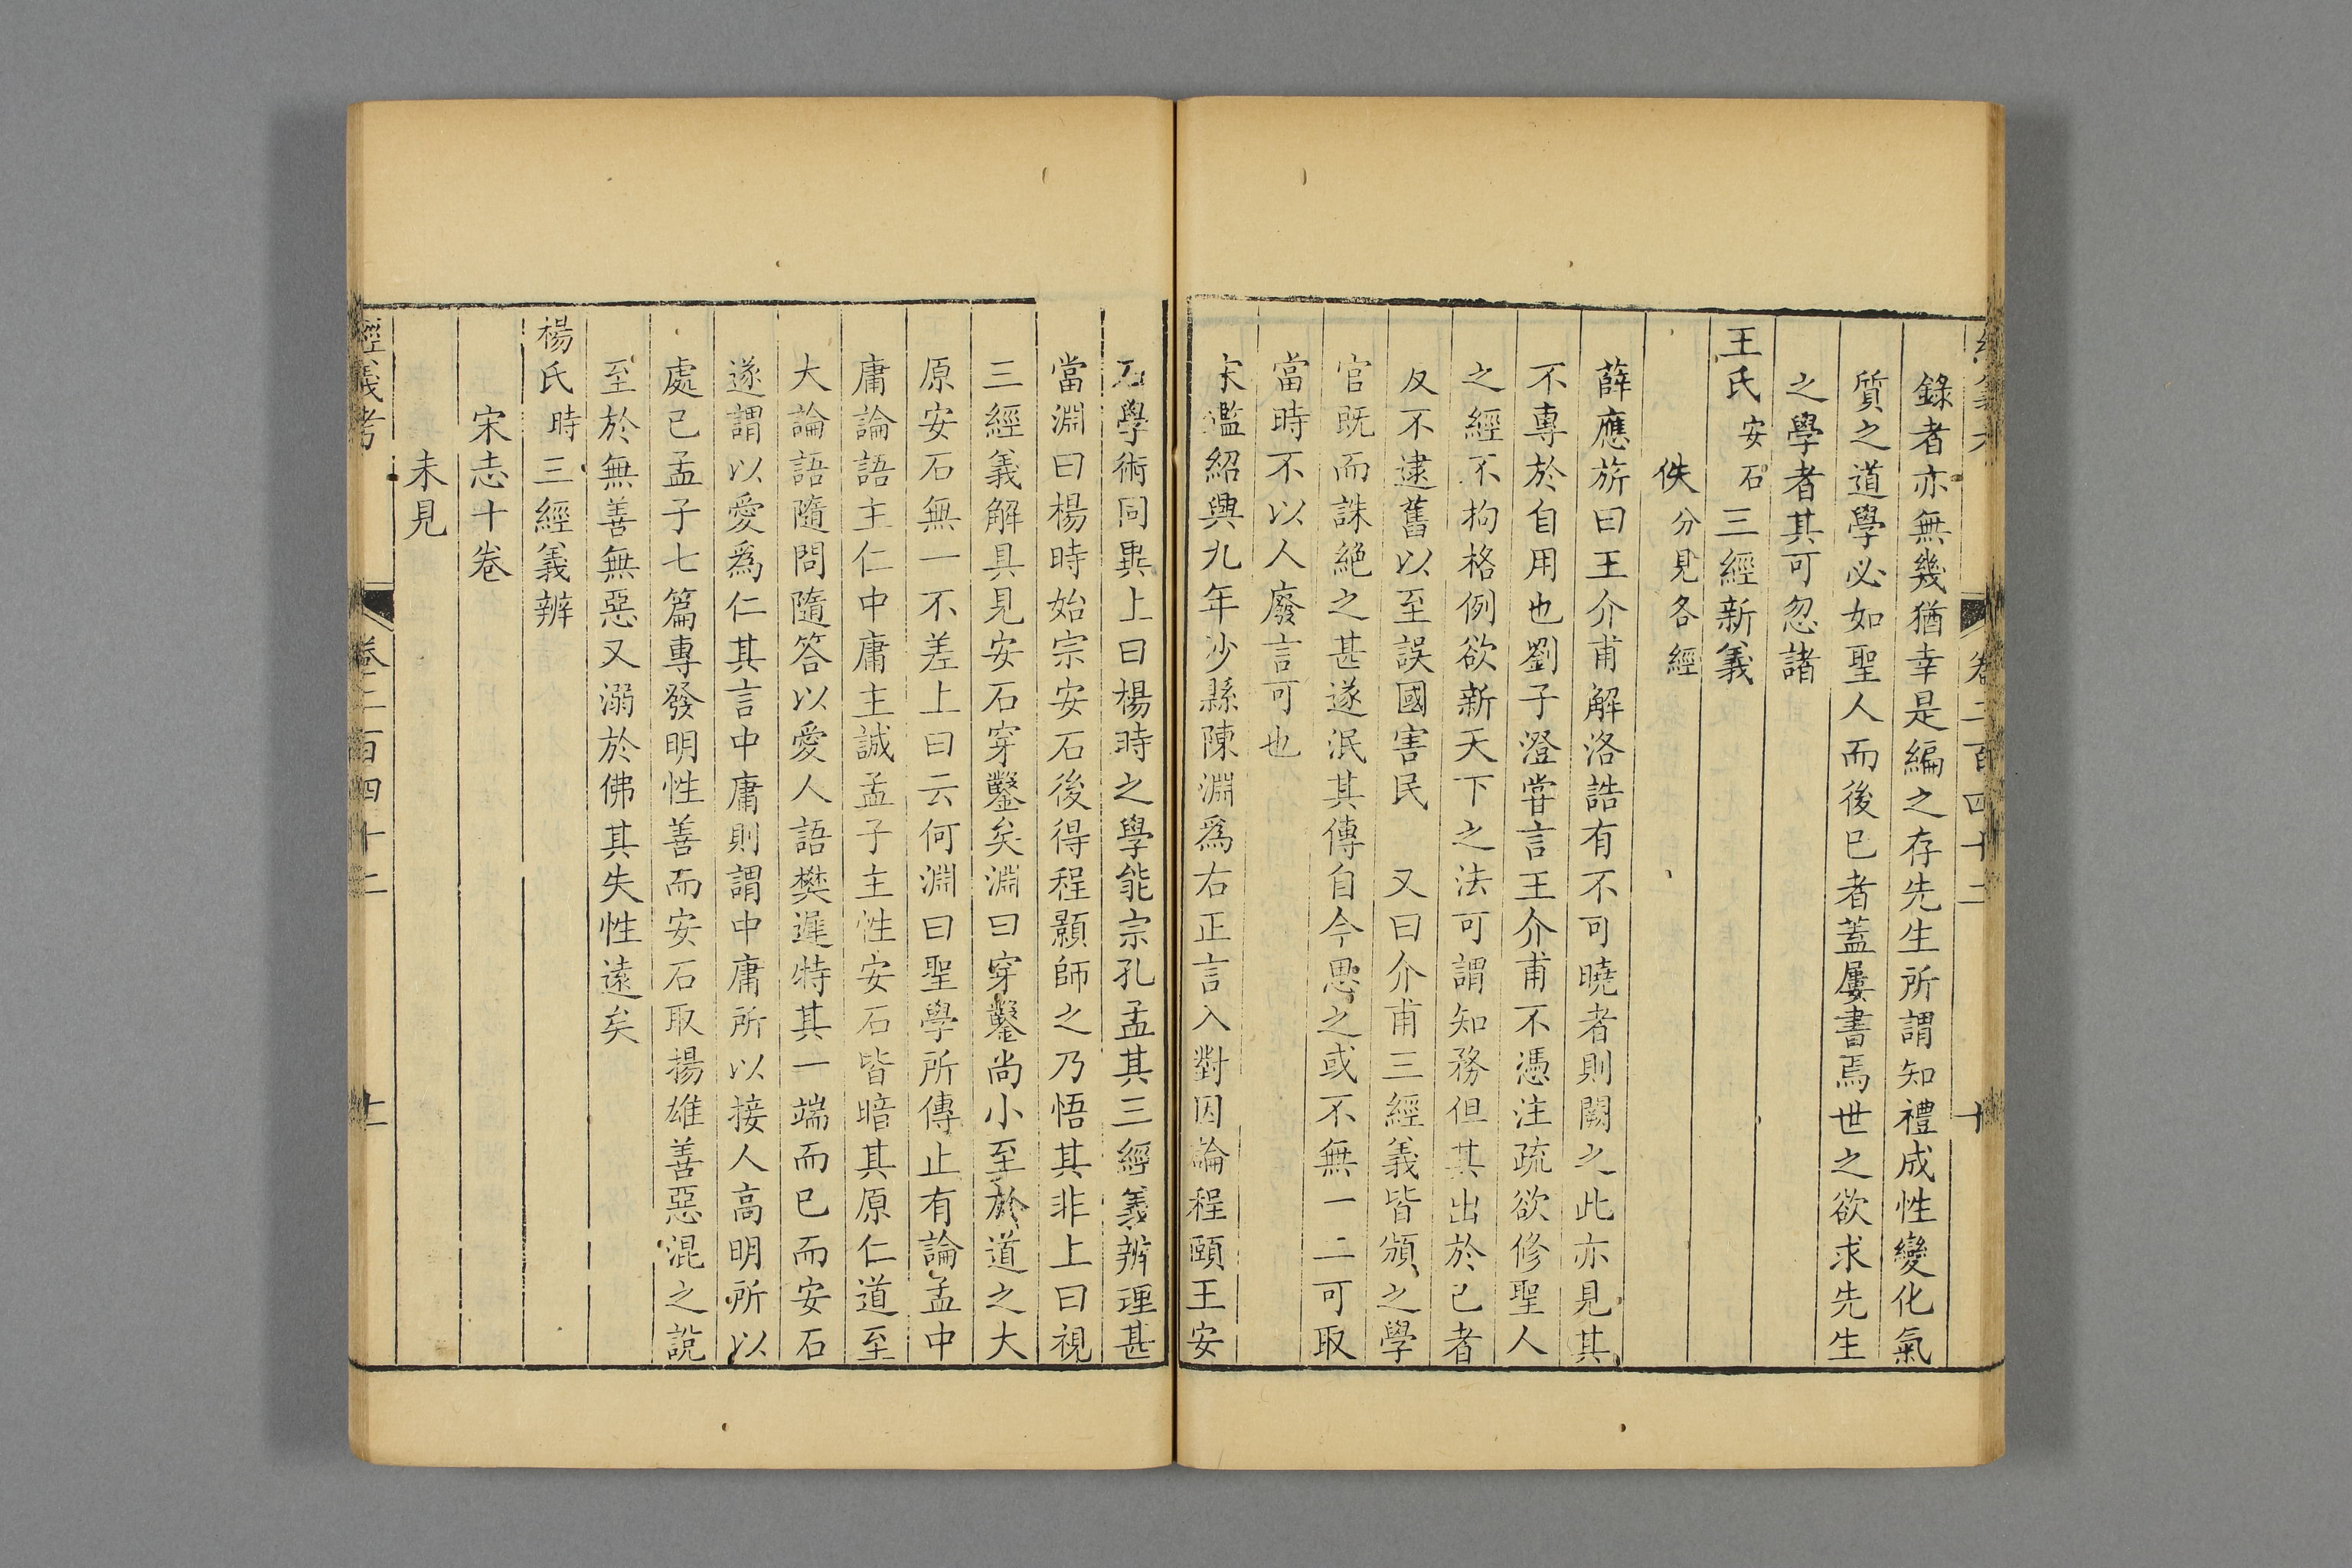 卷二百四十二 十
錄者亦無幾猶幸是編之存先生所謂知禮成性變化氣
質之道學必如聖人而後已者蓋屢書焉世之欲求先生
之學者其可忽諸
王氏安石三經新義
佚分見各經
薛應旂曰王介甫解洛誥有不可曉者則闕之此亦見其
不專於自用也劉子澄嘗言王介甫不憑注疏欲修聖人
之經不拘格例欲新天下之法可謂知務但其出於己者
反不逮舊以至誤國害民 又曰介甫三經義皆頒之學
官既而誅絕之甚遂泯其傳自今思之或不無一二可取
當時不以人廢言可也
宋鑑紹興九年沙縣陳淵爲右正言入對因論程頤王安
石學術同異上曰楊時之學能宗孔孟其三經義辨理甚
當淵曰楊時始宗安石後得程顥師之乃悟其非上曰視
三經義解具見安石穿鑿矣淵曰穿鑿尚小至於道之大
原安石無一不差上曰云何淵曰聖學所傳止有論孟中
庸論語主仁中庸主誠孟子主性安石皆暗其原仁道至
大論語隨問隨答以愛人語樊遲特其一端而已而安石
遂謂以愛爲仁其言中庸則謂中庸所以接人高明所以
處己孟子七篇專發明性善而安石取揚雄善惡混之說
至於無善無惡又溺於佛其失性遠矣
楊氏時三經義辨
宋志十卷
未見
經義考 卷二百四十二 十一